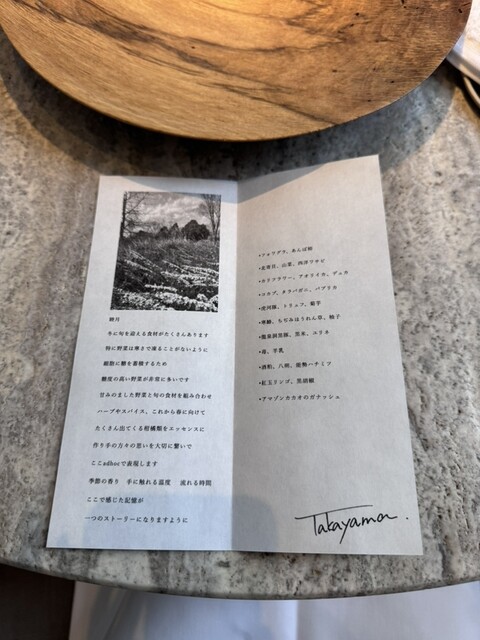 睦月
冬に旬を迎える食材がたくさんあります
特に野菜は寒さで凍ることがないように
細胞に糖を蓄積するため
糖度の高い野菜が非常に多いです
甘みのました野菜と旬の食材を組み合わせ
ハーブやスパイス、これから春に向けて
たくさん出てくる柑橘類をエッセンスに
作り手の方々の思いを大切に繋いで
ここadhocで表現します
季節の香り 手に触れる温度 流れる時間
ここで感じた記憶が
一つのストーリーになりますように
•フォワグラ、あんぽ柿
•北寄貝、山菜、西洋ワサビ
•カリフラワー、アオリイカ、デュカ
•コカブ、タラバガニ、パプリカ
•虎河豚、トリュフ、菊芋
•寒鰆、ちぢみほうれん草、柚子
•黒米、ユリネ
•苺、羊乳
•酒粕、八朔、能勢ハチミツ
•紅玉リンゴ、黒胡椒
•アマゾンカカオのガナッシュ
Takayama.